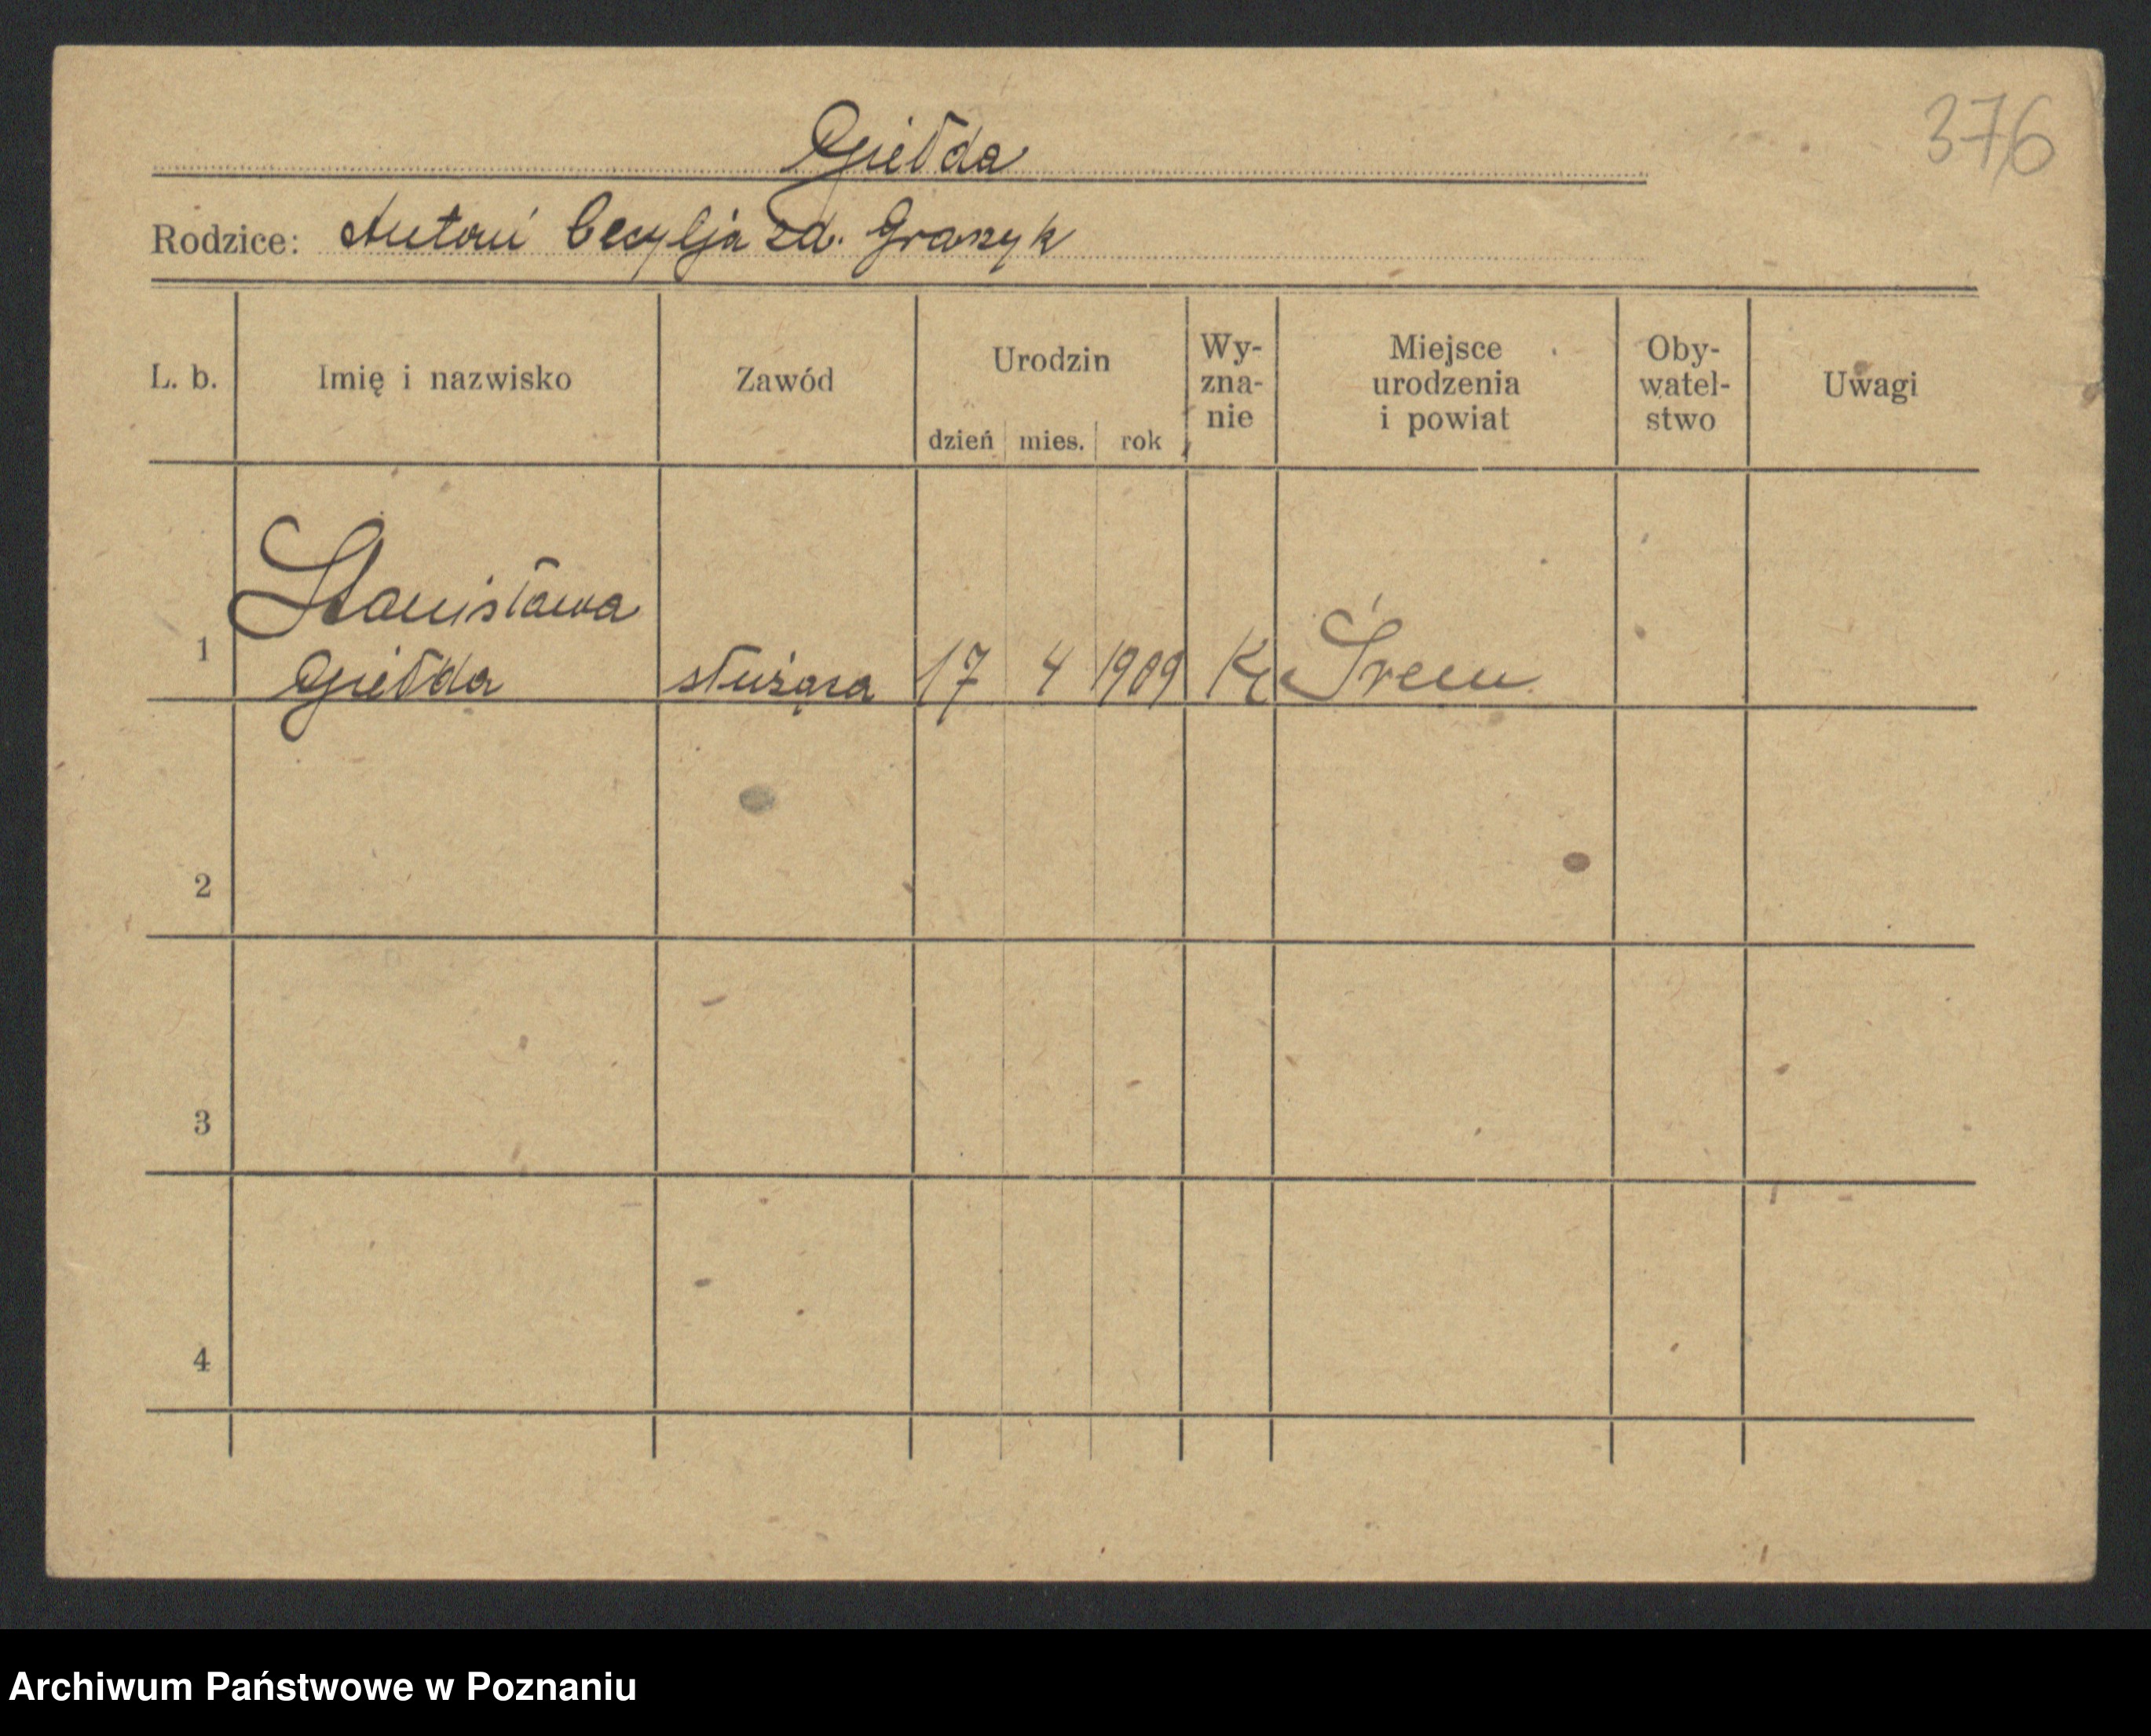 376
Giełda
Rodzice: Antoni Cecylja zd. Graszyk
L. b. Imię i nazwisko Zawód Urodzin dzień mies. rok Wy-zna-nie Miejsce urodzenia i powiat Oby-watel-stwo Uwagi
Stanisława
1 Giełda służąca 17 4 1909 Kr Śrem
2
3
4
Archiwum Państwowe w Poznaniu